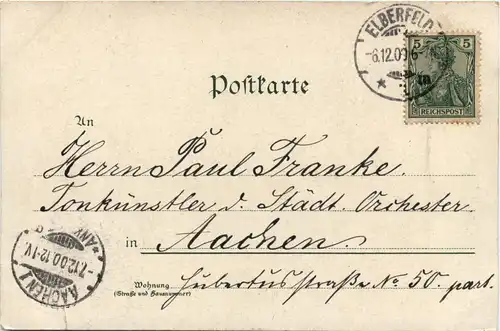 ELBERFELD
-6.12.00 6-
5 5
REICHSPOST
Postkarte
An
Herrn Paul Franke.
Tonkünstler d. Städt. Orchester
in Aachen.
AACHEN 1
-7.12.00.12-1V.
ANK
Wohnung Hubertusstraße No 50. part.
(Straße und Hausnummer)